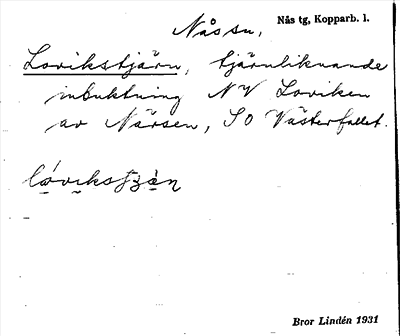 Nås sn,
Nås tg, Kopparb. l.
Lovikstjärn, tjärnliknande
inbuktning NV Loviken
av Närsen, SO Västerfallet.
lóvikstjän
Bror Lindén 1931